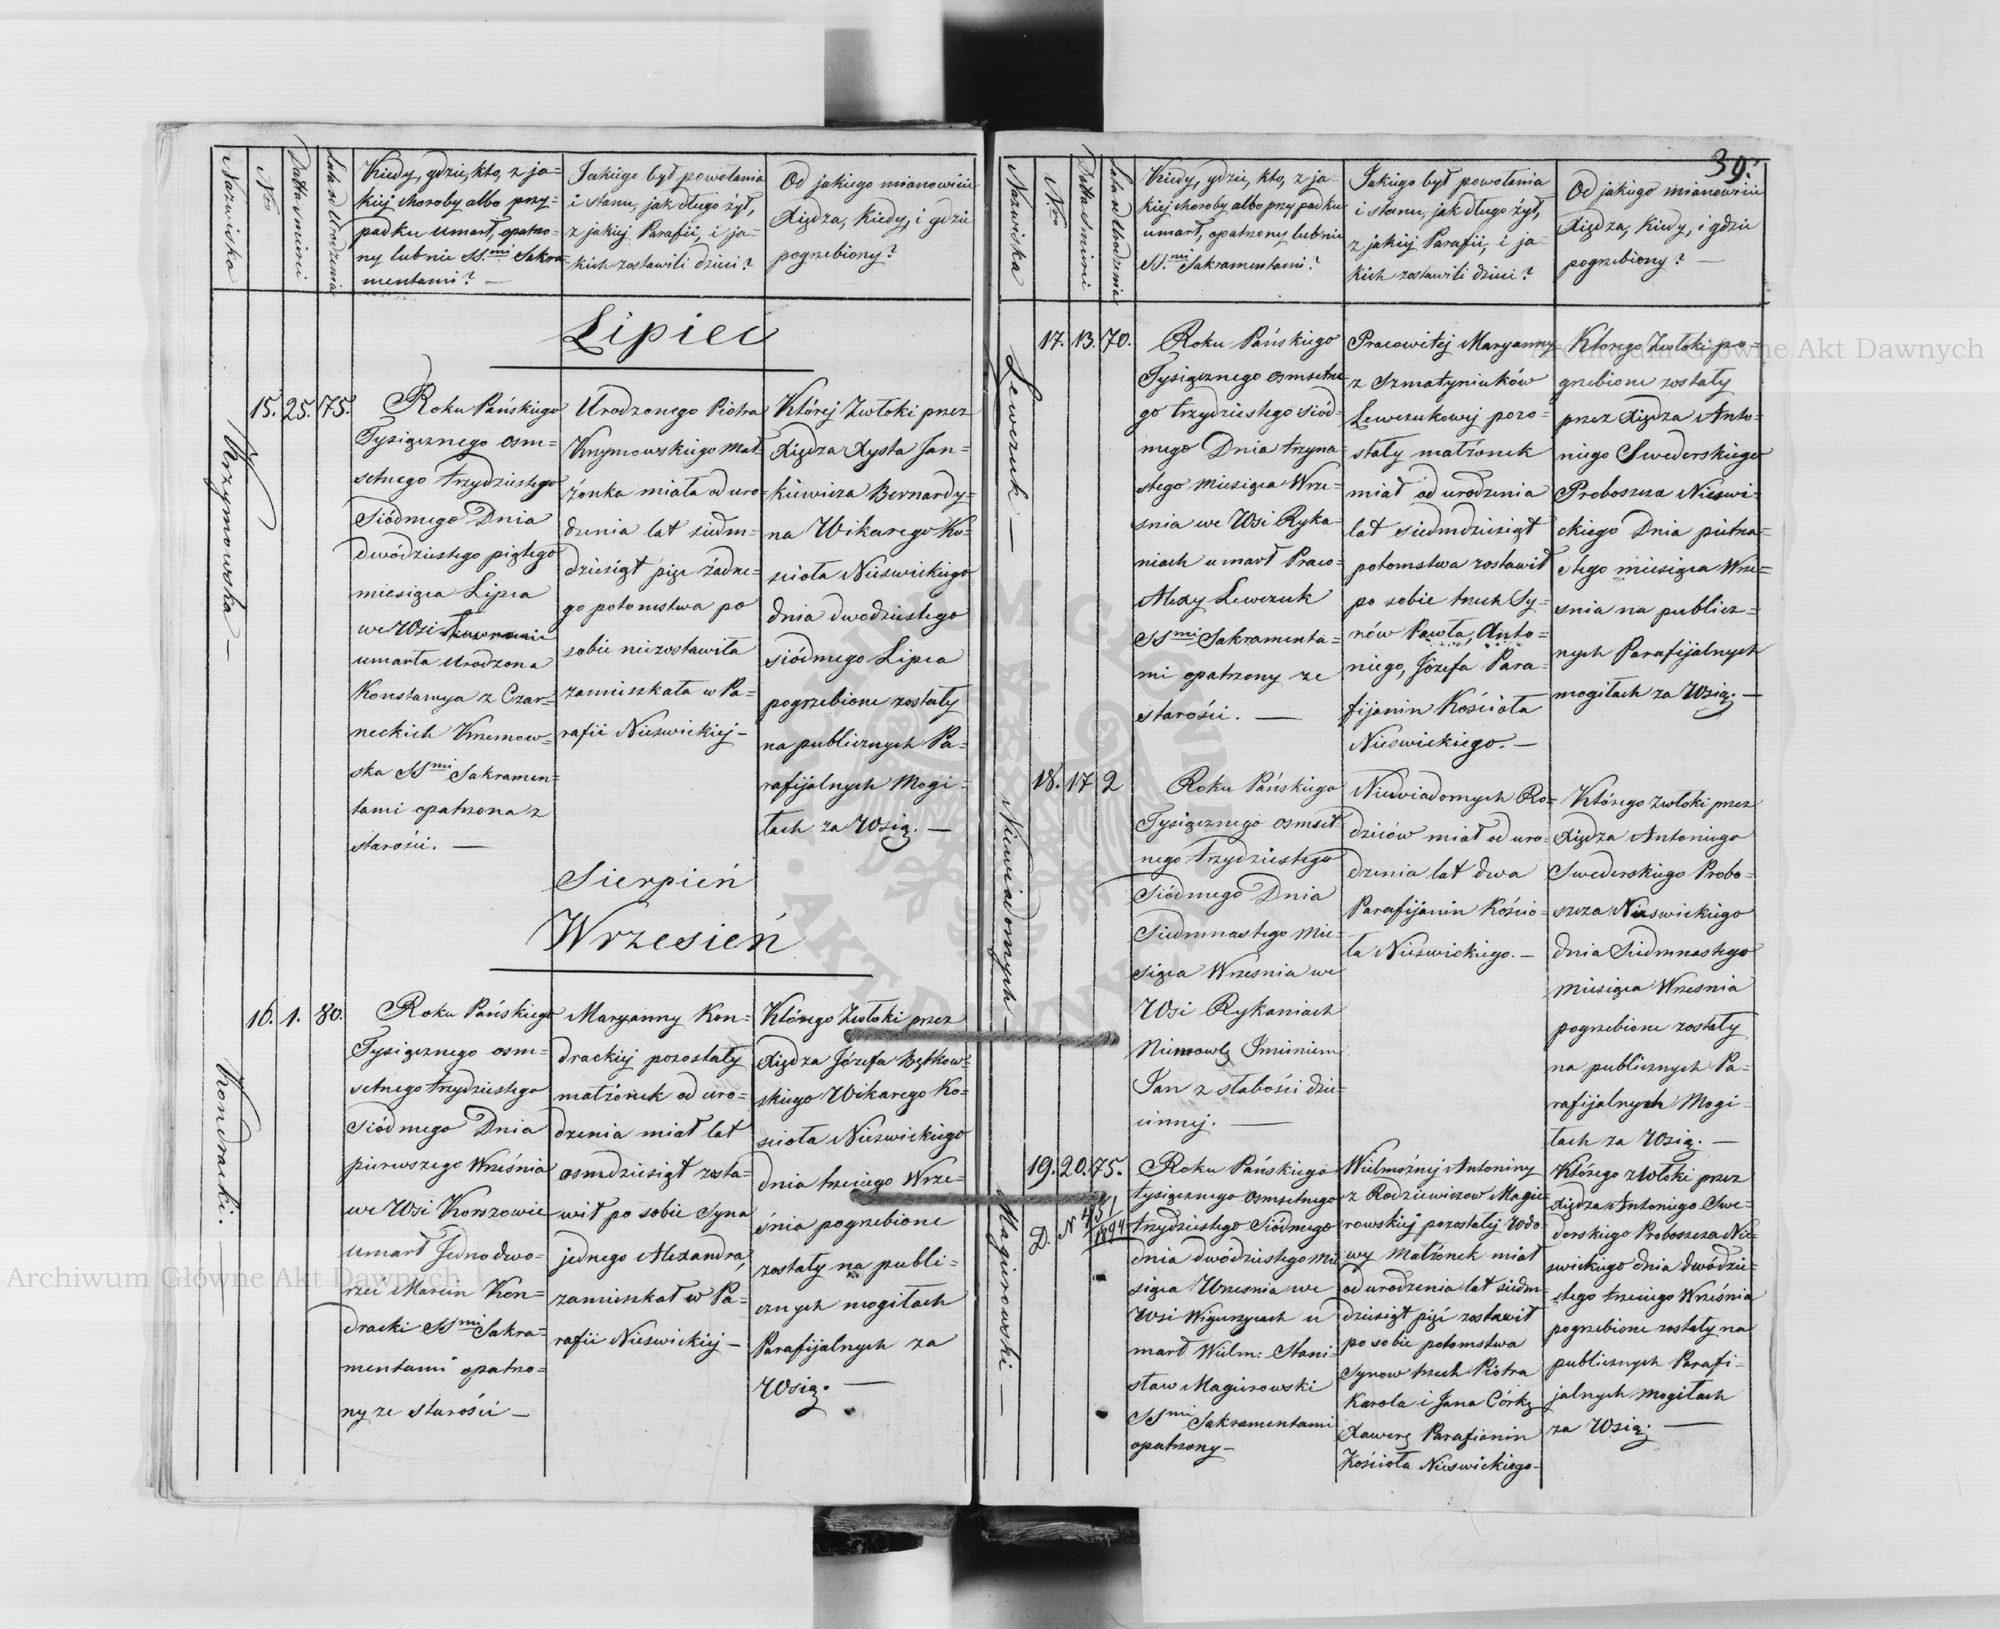 39.
Nazwiska
Nro
Datta śmierci
Lata od Urodzenia
Kiedy, gdzie, kto, z ja=
kiej choroby albo przy=
padku umarł, opatrzo=
ny lub nie SS.mi Sakra=
mentami? —
Jakiego był powołania
i stanu, jak długo żył,
z jakiej Parafii, i ja=
kich zostawili dzieci?
Od jakiego mianowicie
Xiędza, kiedy, i gdzie
pogrzebiony?
Lipiec
Krzymowska —
15.
25.
75.
Roku Pańskiego
Tysięcznego osm=
setnego trzydziestego
Siódmego Dnia
dwódziestego piątego
miesiąca Lipca
we Wsi
umarła Urodzona
Konstancya z Czar=
neckich Krzemow=
ska SSmi Sakramen=
tami opatrzona z
starości. —
Urodzonego Piotra
Krzymowskiego Mał=
żonka miała od uro=
dzenia lat siedm=
dziesiąt pięć żadne=
go potomstwa po
sobie niezostawiła
zamieszkała w Pa=
rafii Nieswickiej —
Której Zwłoki przez
Xiędza Xysta Jan=
kiewicza Bernardy=
na Wikarego Ko=
scioła Nieswickiego
dnia dwodziestego
siódmego Lipca
pogrzebione zostały
na publicznych Pa=
rafijalnych Mogi=
łach za Wsią. —
Sierpień
Wrzesień
Kondracki. —
16.
1.
80.
Roku Pańskiego
Tysięcznego osm=
setnego trzydziestego
Siódmego Dnia
pierwszego Września
we Wsi Korszowie
umarł Jednodwo=
rzec Marcin Kon=
dracki SSmi Sakra=
mentami opatrzo=
ny ze starości —
Maryanny Kon=
drackiej pozostały
małżonek od uro=
dzenia miał lat
osmdziesiąt zosta=
wił po sobie Syna
jednego Alexandra,
zamieszkał w Pa=
rafii Nieswickiej —
Którego Zwłoki przez
Xiędza Józefa Bętkow=
skiego Wikarego Ko=
scioła Nieswickiego
dnia trzeciego Wrze=
śnia pogrzebione
zostały na publi=
cznych mogiłach
Parafijalnych za
Wsią. —
Nazwiska
Nro
Datta śmierci
Lata od Urodzenia
Kiedy, gdzie, kto, z ja=
kiej choroby albo przypadku
umarł, opatrzony lub nie
SS.mi Sakramentami?
Jakiego był powołania
i stanu, jak długo żył,
z jakiej Parafii, i ja=
kich zostawili dzieci?
Od jakiego mianowicie
Xiędza, kiedy, i gdzie
pogrzebiony? —
Lewczuk —
17.
13.
70.
Roku Pańskiego
Tysięcznego osmsetne
go trzydziestego siód=
mego Dnia trzyna=
stego miesiąca Wrze=
snia we Wsi Ryka=
niach umarł Praco=
Alexy Lewczuk
SSmi Sakramenta=
mi opatrzony ze
starości. —
Pracowitej Maryanny
z Szmatyniuków
Lewczukowej pozo=
stały małżonek
miał od urodzenia
lat siedmdziesiąt
potomstwa zostawił
po sobie trzech Sy=
nów Pawła, Anto=
niego, Józefa Para=
fijanin Kościoła
Nieswickiego. —
Ktorego Zwłoki po=
grzebione zostały
przez Xiędza Anto=
niego Swederskiego
Proboszcza Nieswi=
ckiego Dnia pietna=
stego miesiąca Wrze=
snia na publicz=
nych Parafijalnych
mogiłach za Wsią. —
Niewiadomych —
18.
17
2
Roku Pańskiego
Tysięcznego osmset=
nego trzydziestego
Siódmego Dnia
Siedmnastego Mie=
siąca Września we
Wsi Rykaniach
Niemowlę Imieniem
Jan z słabości dzie=
cinnej. —
Niewiadomych Ro=
dziców miał od uro=
dzenia lat dwa
Parafijanin Koscio=
ła Nieswickiego. —
Którego Zwłoki przez
Xiędza Antoniego
Swederskiego Probo=
szcza Nieswickiego
dnia Siedmnastego
Miesiąca Wrzesnia
pogrzebione zostały
na publicznych Pa=
rafijalnych Mogi=
łach za Wsią. —
Magierowski —
19.
20.
75.
D. N 451/1894
Roku Pańskiego
tysięcznego osmsetnego
trzydziestego Siódmego
dnia dwódziestego Mie
siąca Wrzesnia we
Wsi Wiguryczach u
marł Wielm: Stani=
sław Magierowski
SSmi Sakramentami
opatrzony —
Wielmożnej Antoniny
z Rodziewiczow Magie=
rowskiej pozostałej Wdo
wy Małżonek miał
od urodzenia lat siedm=
dziesiąt pięć zostawił
po sobie potomstwa
Synow trzech Piotra
Karola i Jana Córkę
Xawerę Parafianin
Kościoła Nieswickiego —
Którego zwłoki przez
Xiędza Antoniego Swe=
derskiego Proboszcza Nie=
swickiego dnia dwódzie=
stego trzeciego Września
pogrzebione zostały na
publicznych Parafi=
jalnych mogiłach
za Wsią: —
Archiwum Główne Akt Dawnych
Archiwum Główne Akt Dawnych